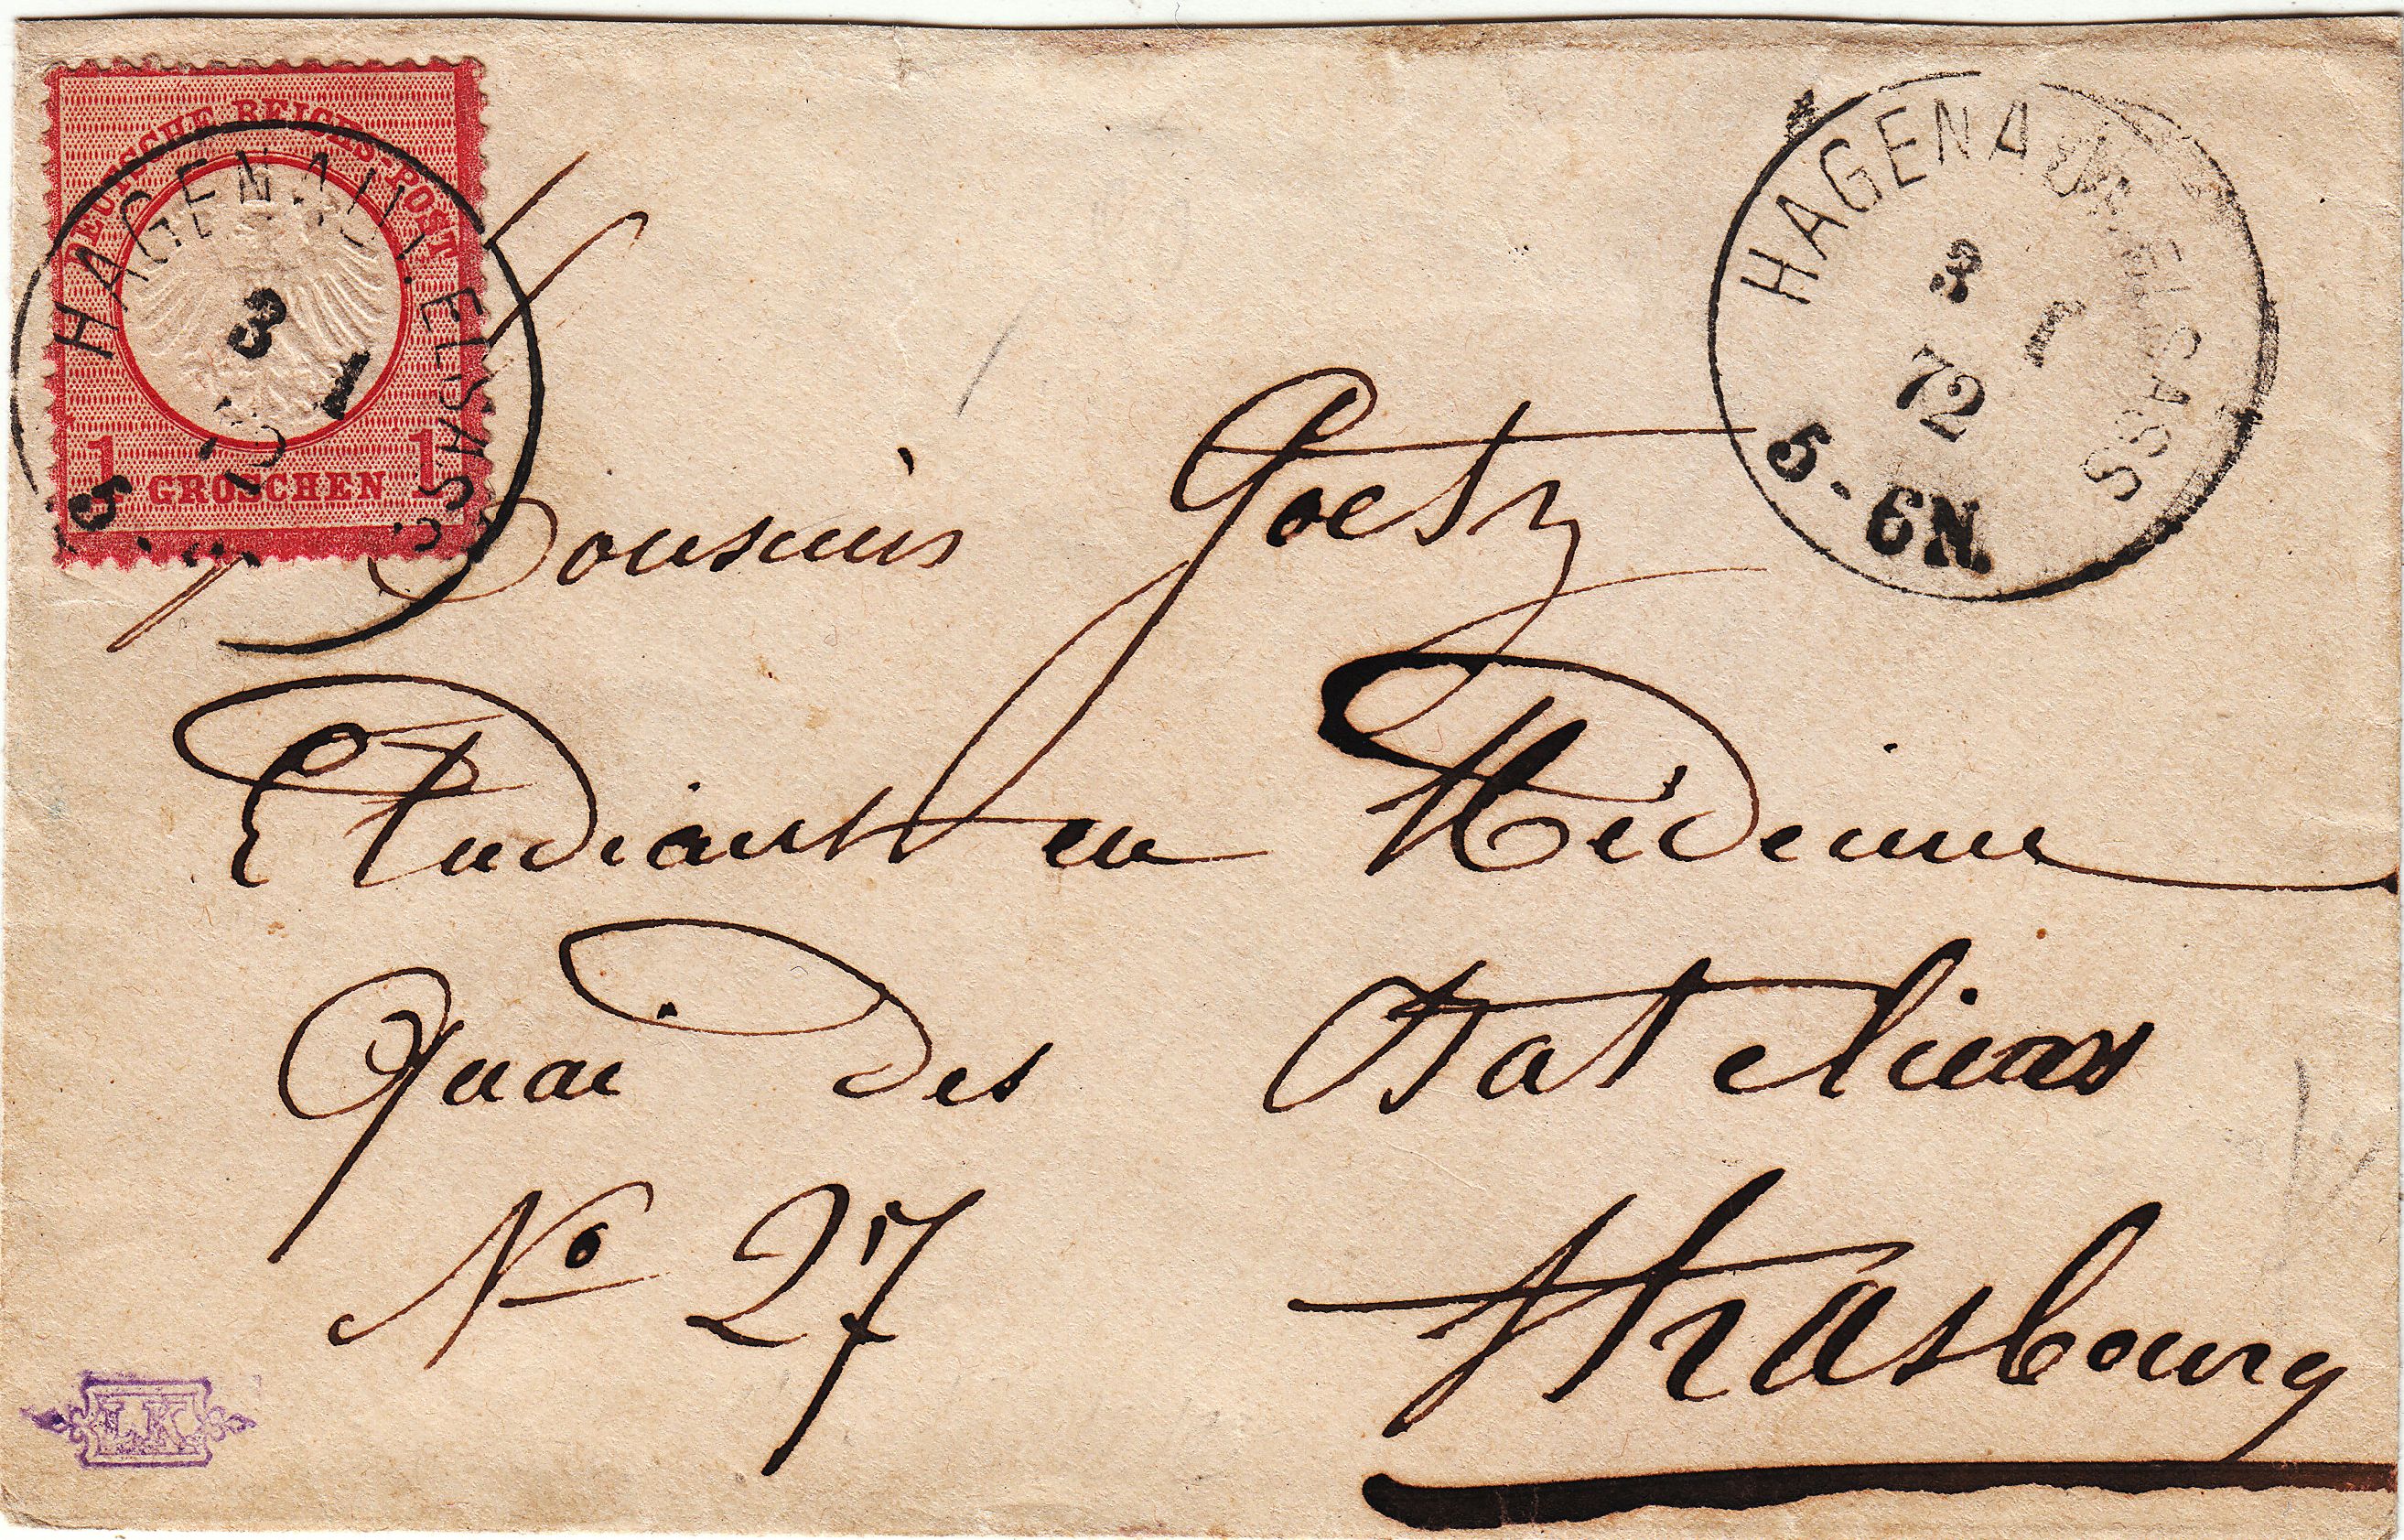 DEUTSCHE REICHS-POST
1 GROSCHEN 1
HAGENAU I. ELSASS
3 1
72
5
HAGENAU I. ELSASS
3 1
72
5-6N.
Goetz
Etudiant en Médecine
Quai des Bateliers
No 27
Strasbourg
LK